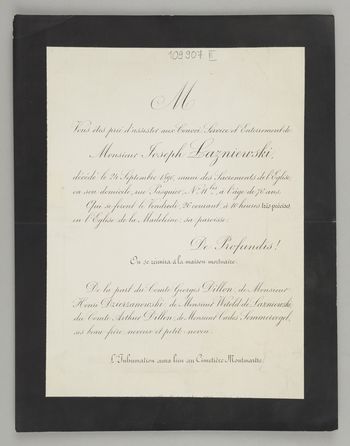 109907 II
M
Vous êtes prié d'assister aux Convoi, Service et Enterrement de
Monsieur Joseph Lazniewski,
décédé le 24 Septembre 1890, muni des Sacrements de l'Église
en son domicile, rue Pasquier, Nº 11 bis, à l'âge de 76 ans.
Qui se feront le Vendredi, 26 courant, à 10 heures très précises
en l'Église de la Madeleine, sa paroisse.
De Profundis!
On se réunira à la maison mortuaire.
De la part du Comte Georges Dillon, de Monsieur
Henri Dzierzanowski, de Monsieur Witold de Lazniewski
du Comte Arthur Dillon, de Monsieur Carlos Sommervogel,
ses beau-frère, neveux et petit-neveu.
L'Inhumation aura lieu au Cimetière Montmartre.